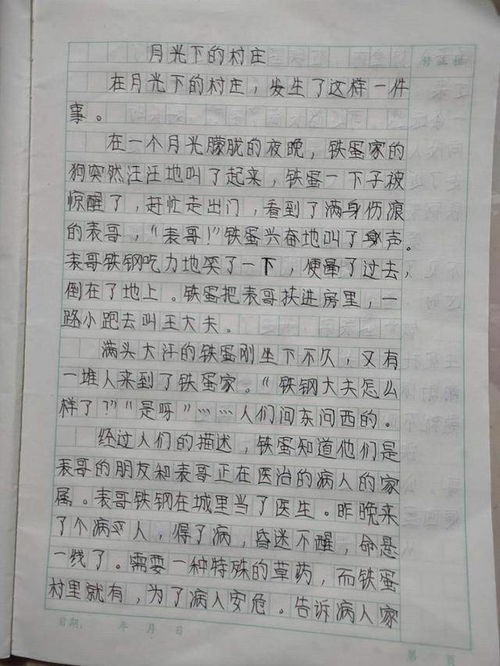 月光下的村庄
在月光下的村庄，发生了这样一件
事。
在一个月光朦胧的夜晚，铁蛋家的
狗突然汪汪地叫了起来，铁蛋一下子被
惊醒了，赶忙走出门，看到了满身伤浪
的表哥，“表哥！”铁蛋兴奋地叫了声。
表哥铁钢吃力地笑了一下，便晕了过去，
倒在了地上。铁蛋把表哥扶进房里，一
路小跑去叫王大夫。
满头大汗的铁蛋刚坐下不久，又有
一堆人来到了铁蛋家。“铁钢大夫怎么
样了？”“是呀”……人们问东问西的。
经过人们的描述，铁蛋知道他们是
表哥的朋友和表哥正在医治的病人的家
属。表哥铁钢在城里当了医生。昨晚来
了个病人，得了病，昏迷不醒，命悬
一线了。需要一种特殊的草药，而铁蛋
村里就有，为了病人安危。告诉病人家
日期： 年 月 日
第 页